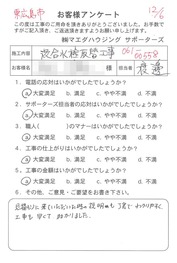 東広島市
12/6
お客様アンケート
この度は工事のご用命を頂きありがとうございました。お手数で
すがご記入頂き、ご返送頂きますようお願い申し上げます。
㈱マエダハウジング サポーターズ
施工内容 混合水栓取替工事 061-00658
お名前 様 担当者
1．電話の応対はいかがでしたでしょうか？
a 大変満足 b．満足 c．やや不満 d．不満
2．サポーターズ担当者の応対はいかがでしたでしょうか？
a 大変満足 b．満足 c．やや不満 d．不満
3．職人（ ）のマナーはいかがでしたでしょうか？
a 大変満足 b．満足 c．やや不満 d．不満
4．工事の仕上がりはいかがでしたでしょうか？
a 大変満足 b．満足 c．やや不満 d．不満
5．工事の金額はいかがでしたでしょうか？
a 大変満足 b．満足 c．やや不満 d．不満
6．その他、ご意見・ご要望をお書き下さい。
に来ていただいた時の説明も丁寧でわかりやすく
工事も早くて助かりました。